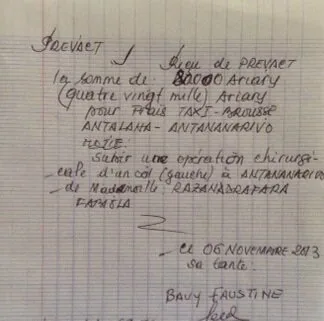 PREVACT
Reçu de PREVACT
la somme de 80000 Ariary
(quatre vingt mille) Ariary
pour Frais TAXI-BROUSSE
ANTALAHA - ANTANANARIVO
MOTIF.
Subir une opération chirurgi-
cale d'un œil (gauche) à ANTANANARIVO
de Mademoiselle RAZANADRAFARA
FARAOLA
Le 06 NOVEMBRE 2013
sa tante.
BAVY FAUSTINE